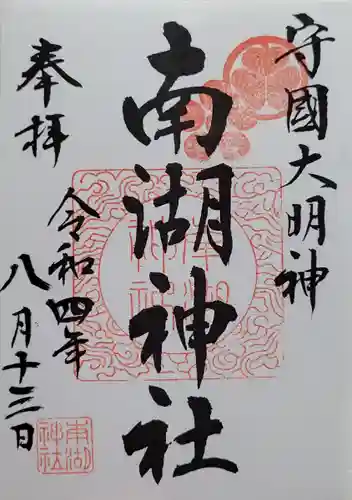 守國大明神
南湖神社
奉拝
令和四年
八月十三日
南湖
神社